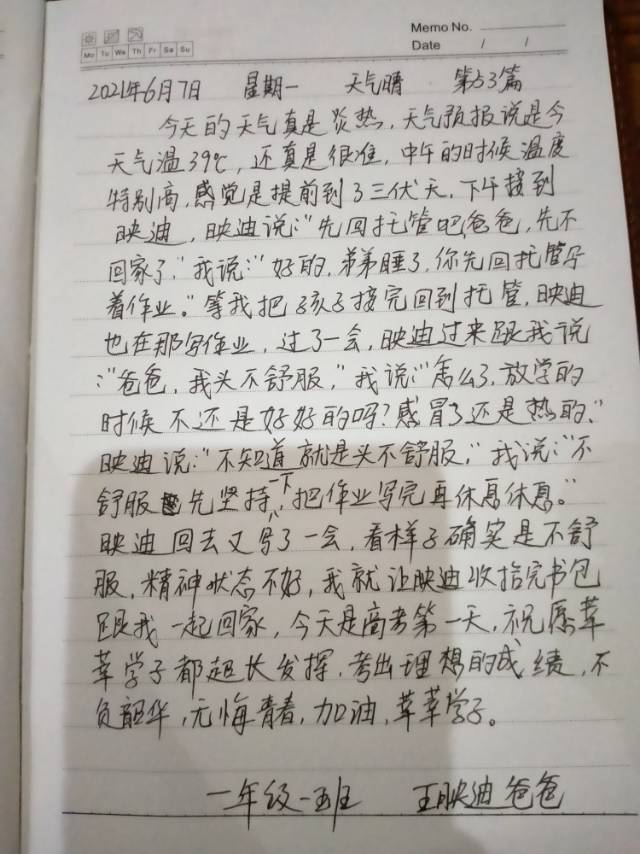 Memo No.
Mo Tu We Th Fr Sa Su
Date / /
2021年6月7日 星期一 天气晴 第53篇
今天的天气真是炎热，天气预报说是今
天气温39℃，还真是很准，中午的时候温度
特别高，感觉是提前到了三伏天，下午接到
映迪，映迪说：“先回托管吧爸爸，先不
回家了，”我说：“好的，弟弟睡了，你先回托管写
着作业。”等我把孩子接完回到托管，映迪
也在那写作业，过了一会，映迪过来跟我说
：“爸爸，我头不舒服，”我说：“怎么了，放学的
时候不还是好好的吗？感冒了还是热的，”
映迪说：“不知道就是头不舒服，”我说：“不
舒服先坚持一下，把作业写完再休息休息。”
映迪回去又写了一会，看样子确实是不舒
服，精神状态不好，我就让映迪收拾完书包
跟我一起回家，今天是高考第一天，祝愿莘
莘学子都超长发挥，考出理想的成绩，不
负韶华，无悔青春，加油，莘莘学子。
一年级一班 王映迪爸爸